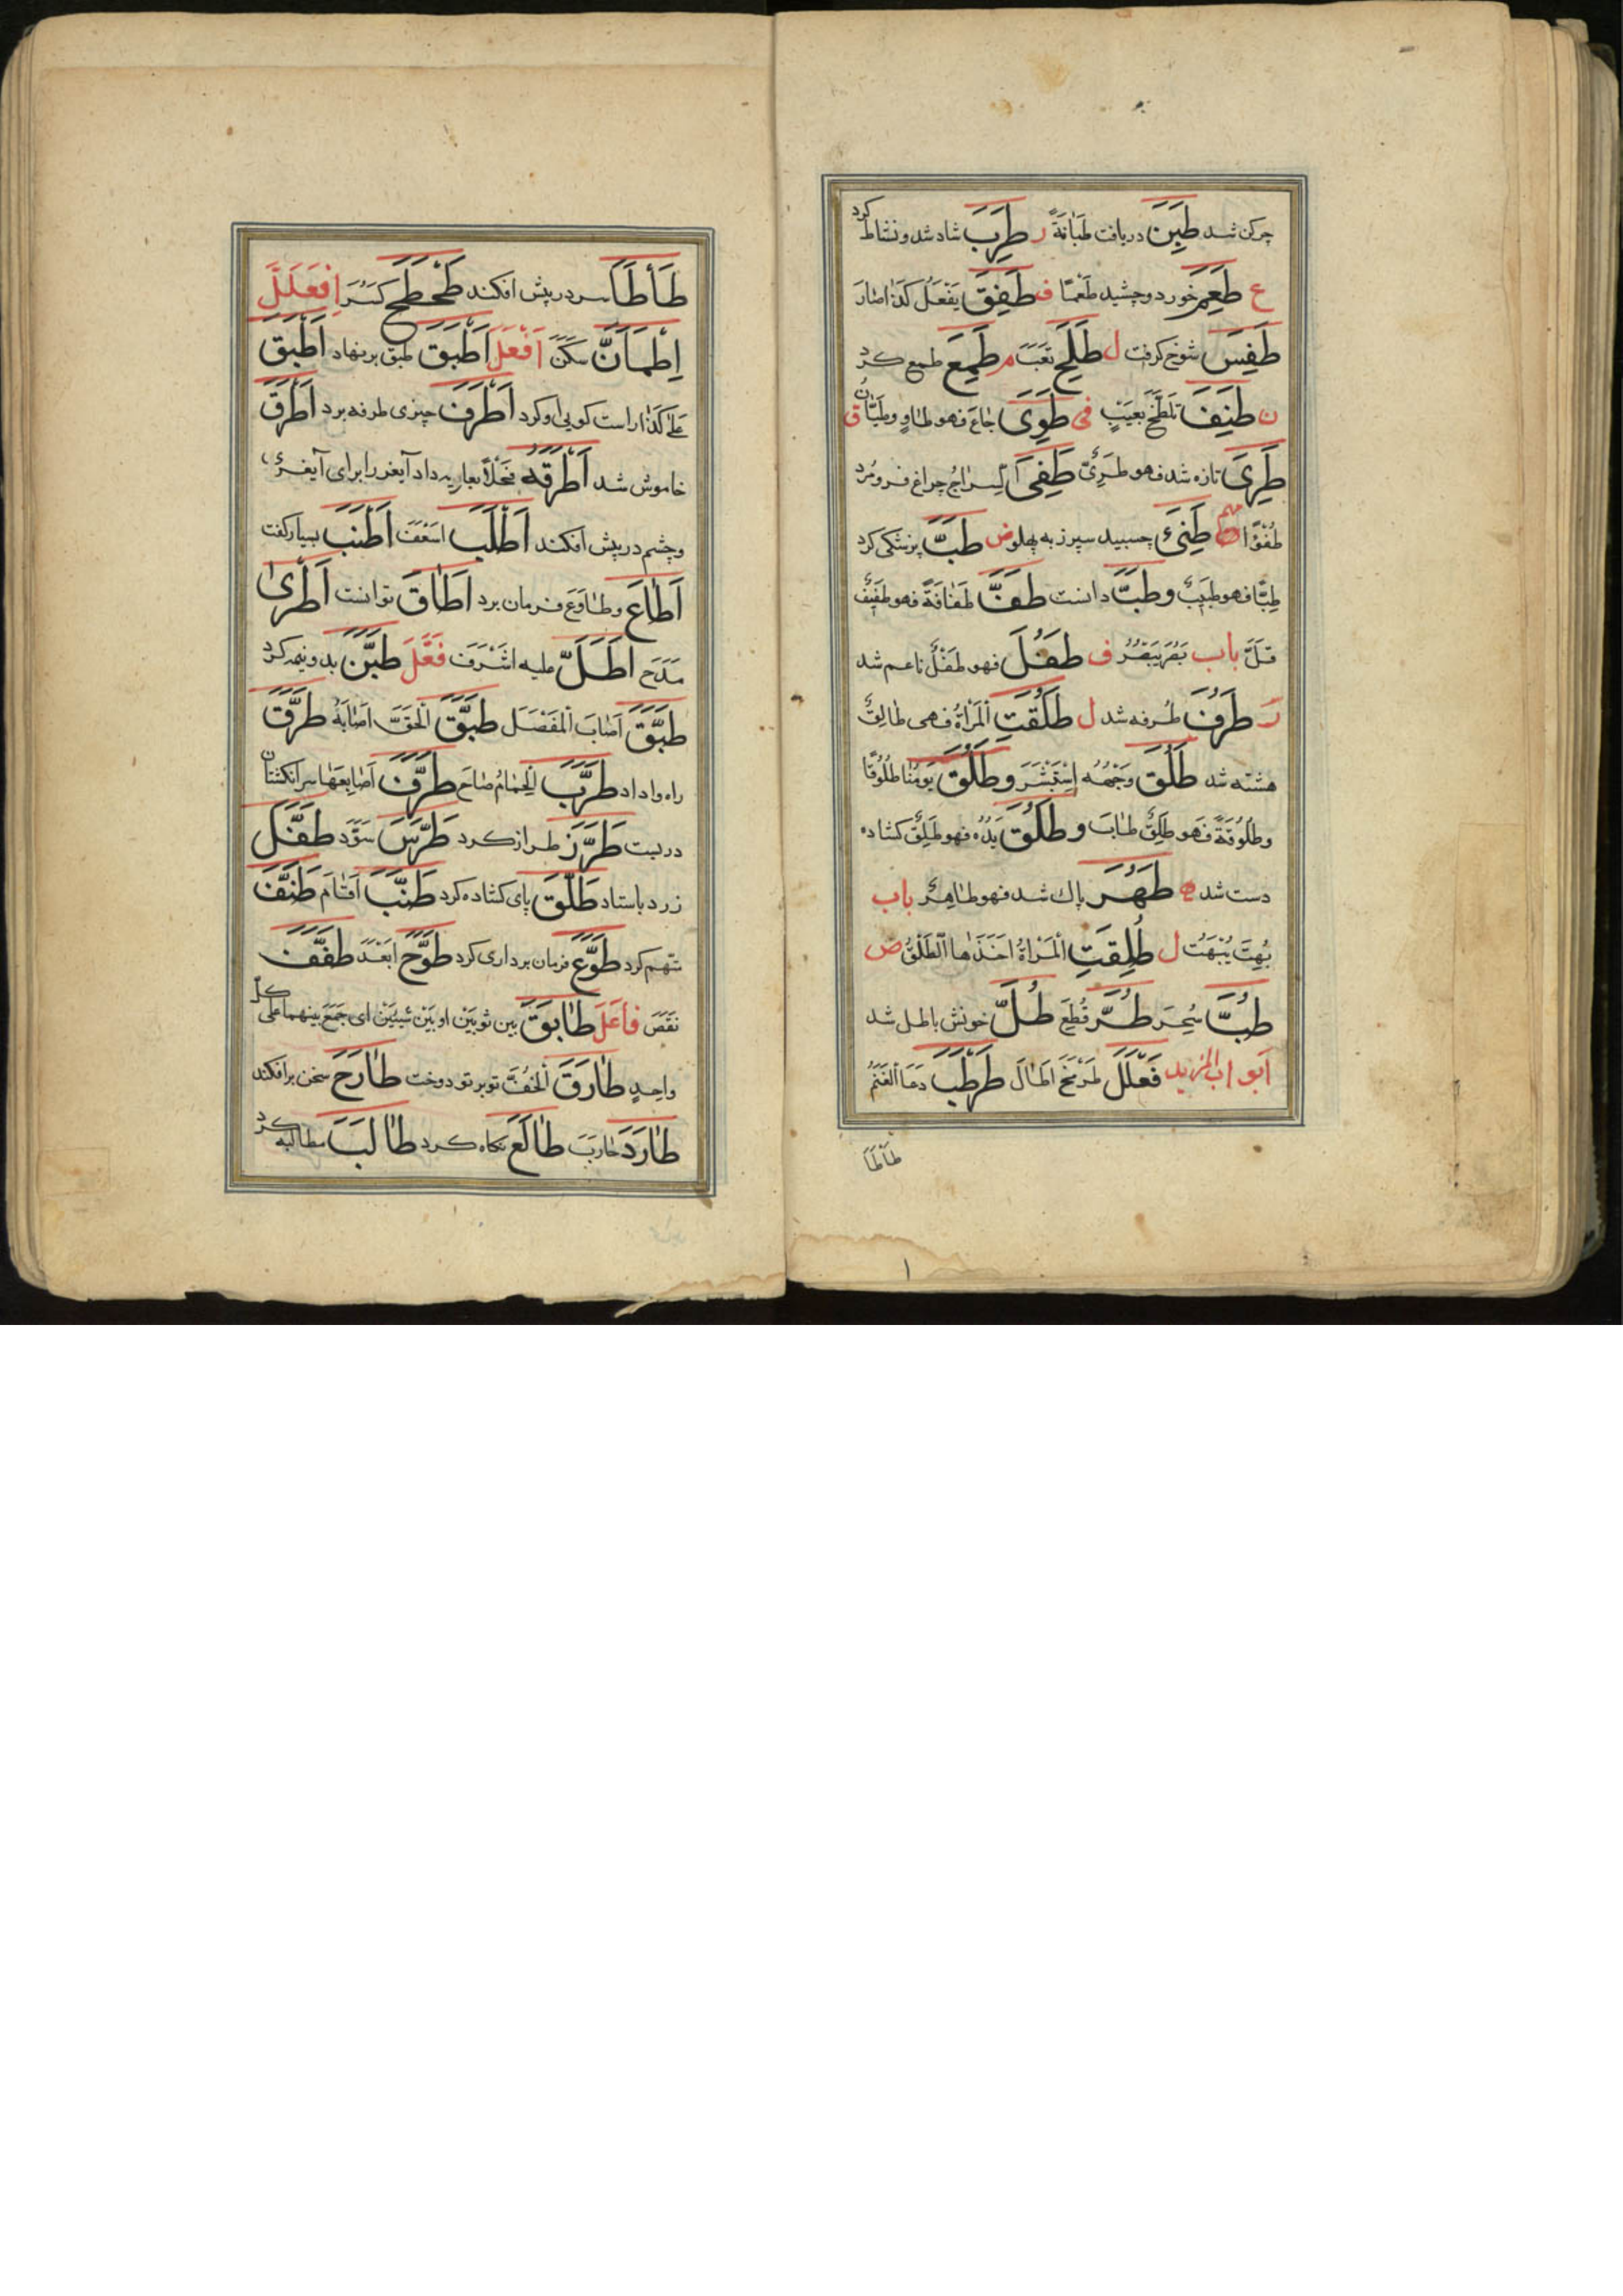 چرکن شد طَبِنَ دریافت طَبَانَةً ر طَرِبَ شاد شد و نشاط کرد
ع طَعِمَ خورد و چشید طَعْمًا ف طَفِقَ یَفْعَلُ کَذَا صَارَ
طَفِسَ شوخ گرفت ل طَلِحَ تَعِبَ م طَمِعَ طمع کرد
ن طَنِفَ تَلَطَّخَ بِعَیْبٍ فی طَوِیَ جَاعَ فهو طَاوٍ وطَیَّانُ ق
طَرِیَ تازه شد فهو طَرِیٌّ طَفِیَ السِّرَاجُ چراغ فرو مُرد
طُفُوًّا طَنِیَٔ چسبید سپرز به پهلو ض طَبَّ پزشکی کرد
طِبًّا فهو طَبِیبٌ وطَبَّ دانست طَفَّ طَفَافَةً فهو طَفِیفٌ
قَلَّ باب بَصُرَ یَبْصُرُ ف طَفُلَ فهو طَفْلٌ ناعم شد
ر طَرُفَ طُرفه شد ل طَلُقَتِ الْمَرْأَةُ فهی طَالِقٌ
هشته شد طَلُقَ وَجْهُهُ اِسْتَبْشَرَ وطَلُقَ یَوْمُنَا طُلُوقًا
وطُلُوقَةً فَهو طَلِقٌ طَابَ وطَلُقَ یَدُهُ فهو طَلِقٌ کشاده
دست شد ه طَهُرَ پاک شد فهو طَاهِرٌ باب
بُهِتَ یُبْهَتُ ل طُلِقَتِ الْمَرْأَةُ اَخَذَهَا الطَّلْقُ ض
طُبَّ سُحِرَ طُرَّ قُطِعَ طُلَّ خونش باطل شد
اَبواب المزید فَعْلَلَ طَرْمَخَ اَطَالَ طَرْطَبَ دَعَا الْغَنَمَ
طَأْطَأَ
طَأْطَأَ سر در پیش افکند طَحْطَحَ کَسَرَ اِفْعَلَلَّ
اِطْمَأَنَّ سَکَنَ اَفْعَلَ اَطْبَقَ طبق بر نهاد اَطْبَقَ
عَلَی کَذَا راست کویی او کرد اَطْرَفَ چیزی طرفه برد اَطْرَقَ
خاموش شد اَطْرَقَهُ فَحْلًا بعاریه داد آیغر را برای آیغری
و چشم در پیش افکند اَطْلَبَ اَسْعَفَ اَطْنَبَ بسیار کفت
اَطَاعَ وطَاوَعَ فرمان برد اَطَاقَ توانست اَطْرَیٰ
مَدَحَ اَطَلَّ علیه اَشْرَفَ فَعَّلَ طَبَّنَ بدو نیمه کرد
طَبَّقَ اَصَابَ الْمَفْصَلَ طَبَّقَ الْحَقَّ اَصَابَهُ طَرَّقَ
راه واداد طَرَّبَ الْحَمَامُ صَاحَ طَرَّفَ اَصَابِعَهَا سر انکشتان
در بست طَرَّزَ طراز کرد طَرَّسَ سَوَّدَ طَفَّلَ
زرد باستاد طَلَّقَ پای کشاده کرد طَنَّبَ اَقَامَ طَنَّفَ
متّهم کرد طَوَّعَ فرمان برداری کرد طَوَّحَ اَبْعَدَ طَفَّفَ
نَقَصَ فَاعَلَ طَابَقَ بین ثوبَیْن او بَیْنَ شَیْئَیْنِ ای جَمَعَ بینهما علی کلّ
وَاحِدٍ طَارَقَ الْخُفَّ تو بر تو دوخت طَارَحَ سخن برافکند
طَارَدَ حَارَبَ طَالَعَ نکاه کرد طَالَبَ مطالبه کرد